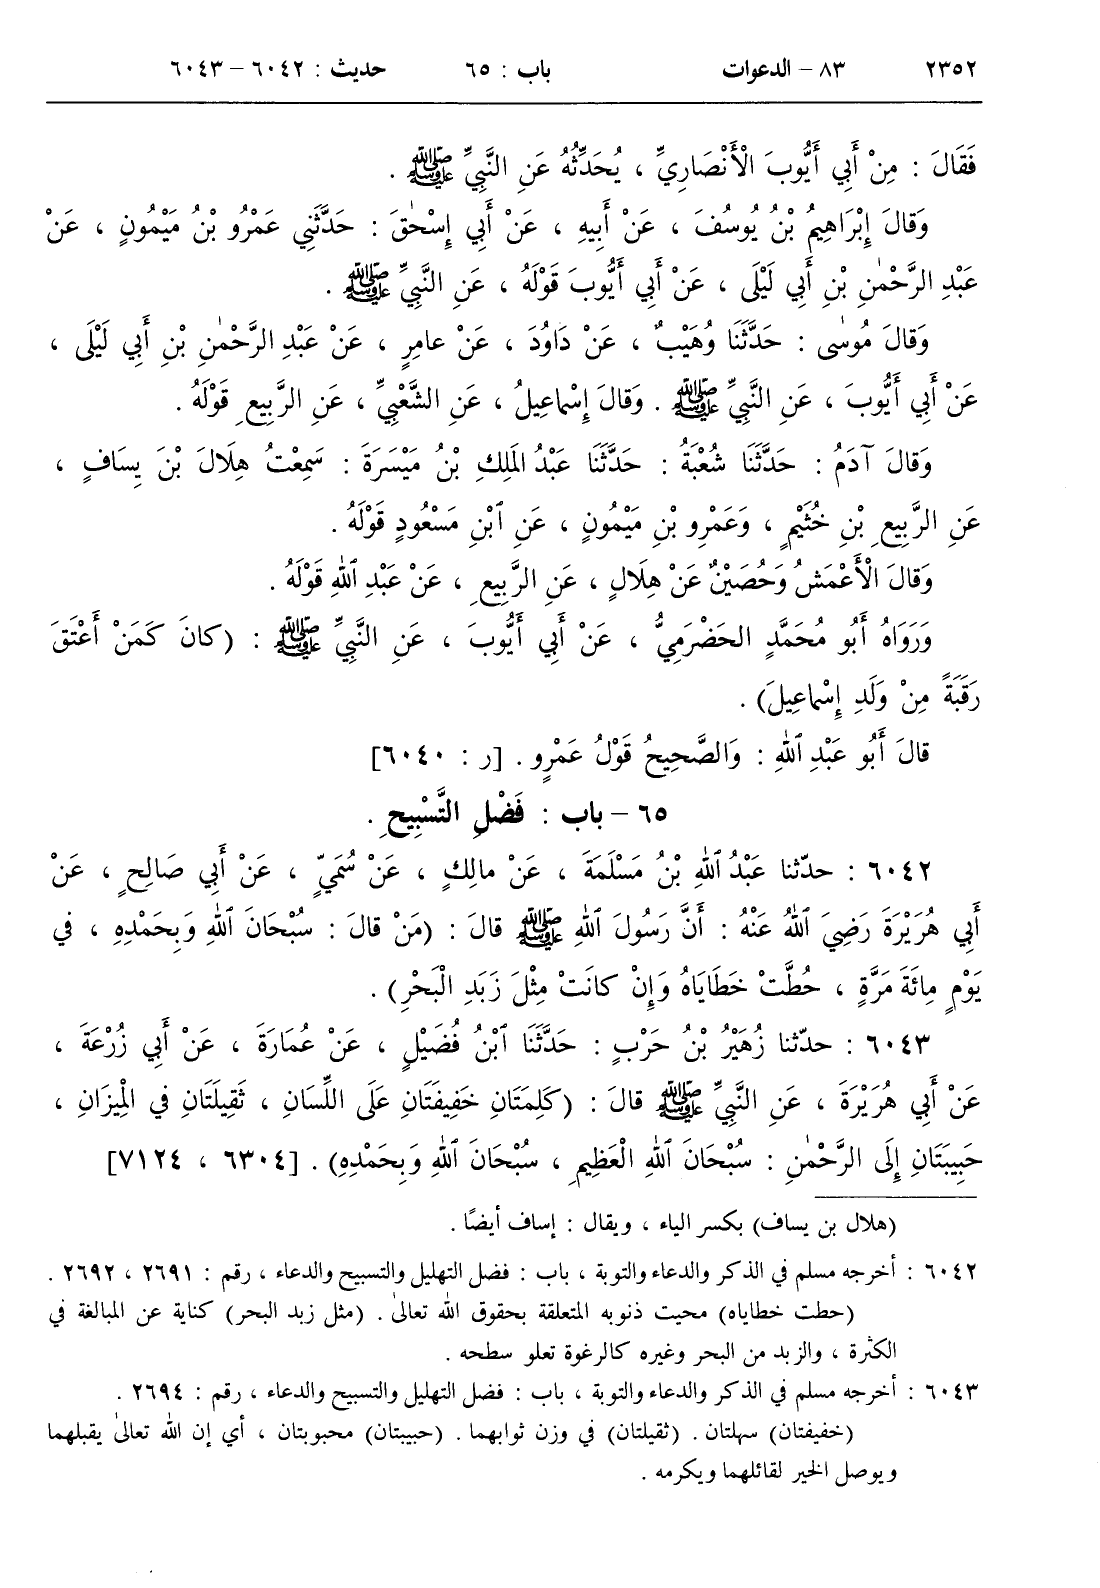 ٢٣٥٢ ٨٣ – الدعوات باب : ٦٥ حديث : ٦٠٤٢ – ٦٠٤٣
فَقَالَ : مِنْ أَبِي أَيُّوبَ الْأَنْصَارِيِّ ، يُحَدِّثُهُ عَنِ النَّبِيِّ ﷺ .
وَقالَ إِبْرَاهِيمُ بْنُ يُوسُفَ ، عَنْ أَبِيهِ ، عَنْ أَبِي إِسْحٰقَ : حَدَّثَنِي عَمْرُو بْنُ مَيْمُونٍ ، عَنْ
عَبْدِ الرَّحْمٰنِ بْنِ أَبِي لَيْلَى ، عَنْ أَبِي أَيُّوبَ قَوْلَهُ ، عَنِ النَّبِيِّ ﷺ .
وَقالَ مُوسٰى : حَدَّثَنَا وُهَيْبٌ ، عَنْ دَاوُدَ ، عَنْ عامِرٍ ، عَنْ عَبْدِ الرَّحْمٰنِ بْنِ أَبِي لَيْلَى ،
عَنْ أَبِي أَيُّوبَ ، عَنِ النَّبِيِّ ﷺ . وَقالَ إِسْماعِيلُ ، عَنِ الشَّعْبِيِّ ، عَنِ الرَّبِيعِ قَوْلَهُ .
وَقالَ آدَمُ : حَدَّثَنَا شُعْبَةُ : حَدَّثَنَا عَبْدُ المَلِكِ بْنُ مَيْسَرَةَ : سَمِعْتُ هِلَالَ بْنَ يِسَافٍ ،
عَنِ الرَّبِيعِ بْنِ خُثَيْمٍ ، وَعَمْرِو بْنِ مَيْمُونٍ ، عَنِ ٱبْنِ مَسْعُودٍ قَوْلَهُ .
وَقالَ الْأَعْمَشُ وَحُصَيْنٌ عَنْ هِلَالٍ ، عَنِ الرَّبِيعِ ، عَنْ عَبْدِ ٱللهِ قَوْلَهُ .
وَرَوَاهُ أَبُو مُحَمَّدٍ الحَضْرَمِيُّ ، عَنْ أَبِي أَيُّوبَ ، عَنِ النَّبِيِّ ﷺ : (كانَ كَمَنْ أَعْتَقَ
رَقَبَةً مِنْ وَلَدِ إِسْماعِيلَ) .
قالَ أَبُو عَبْدِ ٱللهِ : وَالصَّحِيحُ قَوْلُ عَمْرٍو . [ر : ٦٠٤٠]
٦٥ – باب : فَضْلِ التَّسْبِيحِ .
٦٠٤٢ : حدّثنا عَبْدُ ٱللهِ بْنُ مَسْلَمَةَ ، عَنْ مالِكٍ ، عَنْ سُمَيٍّ ، عَنْ أَبِي صَالِحٍ ، عَنْ
أَبِي هُرَيْرَةَ رَضِيَ ٱللهُ عَنْهُ : أَنَّ رَسُولَ ٱللهِ ﷺ قالَ : (مَنْ قالَ : سُبْحَانَ ٱللهِ وَبِحَمْدِهِ ، في
يَوْمٍ مِائَةَ مَرَّةٍ ، حُطَّتْ خَطَايَاهُ وَإِنْ كانَتْ مِثْلَ زَبَدِ الْبَحْرِ) .
٦٠٤٣ : حدّثنا زُهَيْرُ بْنُ حَرْبٍ : حَدَّثَنَا ٱبْنُ فُضَيْلٍ ، عَنْ عُمَارَةَ ، عَنْ أَبِي زُرْعَةَ ،
عَنْ أَبِي هُرَيْرَةَ ، عَنِ النَّبِيِّ ﷺ قالَ : (كَلِمَتَانِ خَفِيفَتَانِ عَلَى اللِّسَانِ ، ثَقِيلَتَانِ في الْمِيزَانِ ،
حَبِيبَتَانِ إِلَى الرَّحْمٰنِ : سُبْحَانَ ٱللهِ الْعَظِيمِ ، سُبْحَانَ ٱللهِ وَبِحَمْدِهِ) . [٦٣٠٤ ، ٧١٢٤]
(هلال بن يساف) بكسر الياء ، ويقال : إساف أيضًا .
٦٠٤٢ : أخرجه مسلم في الذكر والدعاء والتوبة ، باب : فضل التهليل والتسبيح والدعاء ، رقم : ٢٦٩١ ، ٢٦٩٢ .
(حطت خطاياه) محيت ذنوبه المتعلقة بحقوق الله تعالىٰ . (مثل زبد البحر) كناية عن المبالغة في
الكثرة ، والزبد من البحر وغيره كالرغوة تعلو سطحه .
٦٠٤٣ : أخرجه مسلم في الذكر والدعاء والتوبة ، باب : فضل التهليل والتسبيح والدعاء ، رقم : ٢٦٩٤ .
(خفيفتان) سهلتان . (ثقيلتان) في وزن ثوابهما . (حبيبتان) محبوبتان ، أي إن الله تعالىٰ يقبلهما
ويوصل الخير لقائلهما ويكرمه .